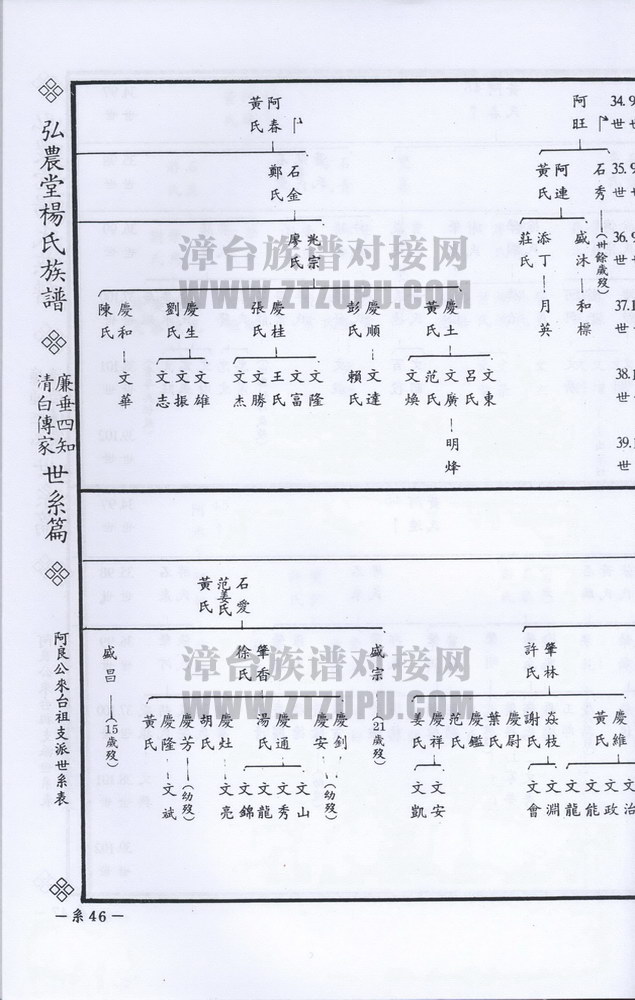 弘農堂楊氏族譜
廉垂四知
清白傳家
世系篇
阿良公來台祖支派世系表
34.9
世
35.9
世
36.9
世
37.1
世
38.1
世
39.1
世
阿旺
阿春
黃氏
石秀
(卅餘歲歿)
阿連
黃氏
石金
鄭氏
盛沐
添丁
莊氏
兆宗
廖氏
和樑
月英
慶土
黃氏
慶順
彭氏
慶桂
張氏
慶生
劉氏
慶和
陳氏
文東
呂氏
文廣
范氏
文煥
文達
賴氏
文隆
文富
王氏
文勝
文杰
文雄
文振
文志
文華
明烽
石愛
范姜氏
黃氏
肇林
許氏
盛宗
(21歲歿)
肇香
徐氏
盛昌
(15歲歿)
慶維
黃氏
焱枝
謝氏
慶尉
葉氏
慶鑑
范氏
慶祥
姜氏
慶釗
慶安
(幼歿)
慶通
湯氏
慶灶
胡氏
慶芳
(幼歿)
慶隆
黃氏
文治
文政
文能
文龍
文淵
文會
文安
文凱
文山
文秀
文龍
文錦
文亮
文斌
漳台族谱对接网
WWW.ZTZUPU.COM
漳台族谱对接网
WWW.ZTZUPU.COM
—系46—